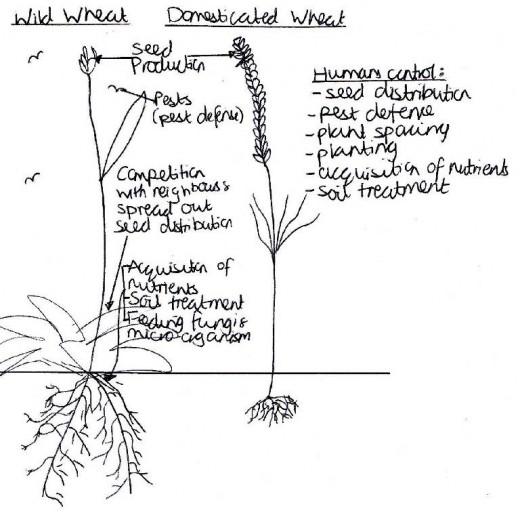 Wild Wheat
Domesticated Wheat
Seed
Production
Pests
(pest defense)
Competition
with neighbours
spread out
seed distribution
Acquisition of
nutrients
-Soil treatment
-Feeding fungi &
micro-organism
Humans control:
- seed distribution
- pest defense
- plant spacing
- planting
- acquisition of nutrients
- soil treatment